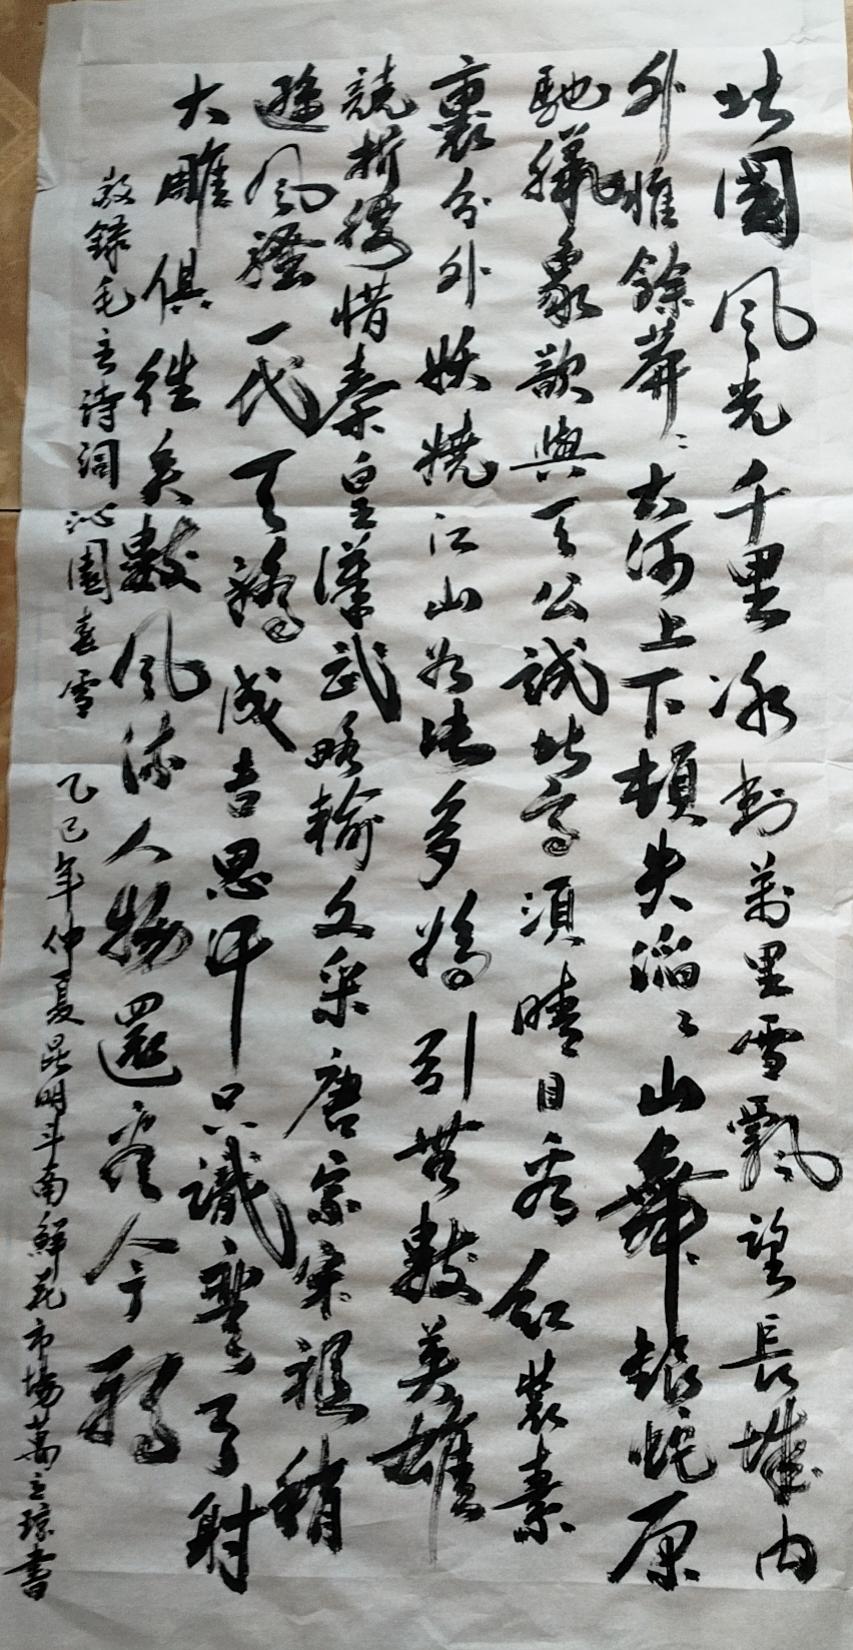 北國風光千里冰封萬里雪飄望長城內
外惟餘莽〻大河上下頓失滔〻山舞銀蛇原
馳臘象欲與天公試比高須晴日看紅裝素
裹分外妖嬈江山如此多嬌引無數英雄
競折腰惜秦皇漢武略輸文采唐宗宋祖稍
遜風騷一代天驕成吉思汗只識彎弓射
大雕俱往矣數風流人物還看今朝
敬録毛主詩詞沁園春雪 乙巳年仲夏昆明斗南鮮花市場萬立琼書